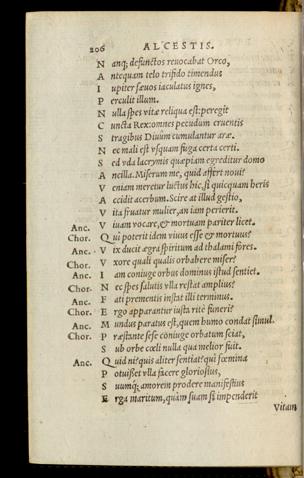 206 ALCESTIS.
Nanq; defunctos reuocabat Orco,
Antequam telo trifido timendus
Iupiter sæuos iaculatus ignes,
Perculit illum.
Nulla spes vitæ reliqua est: peregit
Cuncta Rex: omnes pecudum cruentis
Stragibus Diuûm cumulantur aræ.
Nec mali est vsquam fuga certa certi.
Sed vda lacrymis quæpiam egreditur domo
Ancilla. Miserum me, quid affert noui?
Veniam meretur luctus hic, si quicquam heris
Accidit acerbum. Scire at illud gestio,
Vita fruatur mulier, an iam perierit.
Anc. Viuam vocare, & mortuam pariter licet.
Chor. Qui poterit idem viuus esse & mortuus?
Anc. Vix ducit ægra spiritum ad thalami fores.
Chor. Vxore quali qualis orbabere miser?
Anc. Iam coniuge orbus dominus istud sentiet.
Chor. Nec spes salutis vlla restat amplius?
Anc. Fati prementis instat illi terminus.
Chor. Ergo apparantur iusta ritè funeri?
Anc. Mundus paratus est, quem humo condat simul.
Chor. Præstante sese coniuge orbatum sciat,
Sub orbe cœli nulla qua melior fuit.
Anc. Quid ni? quis aliter sentiat? qui fœmina
Potuisset vlla facere gloriosius,
Suumq; amorem prodere manifestius
Erga maritum, quàm suam si impenderit
Vitam